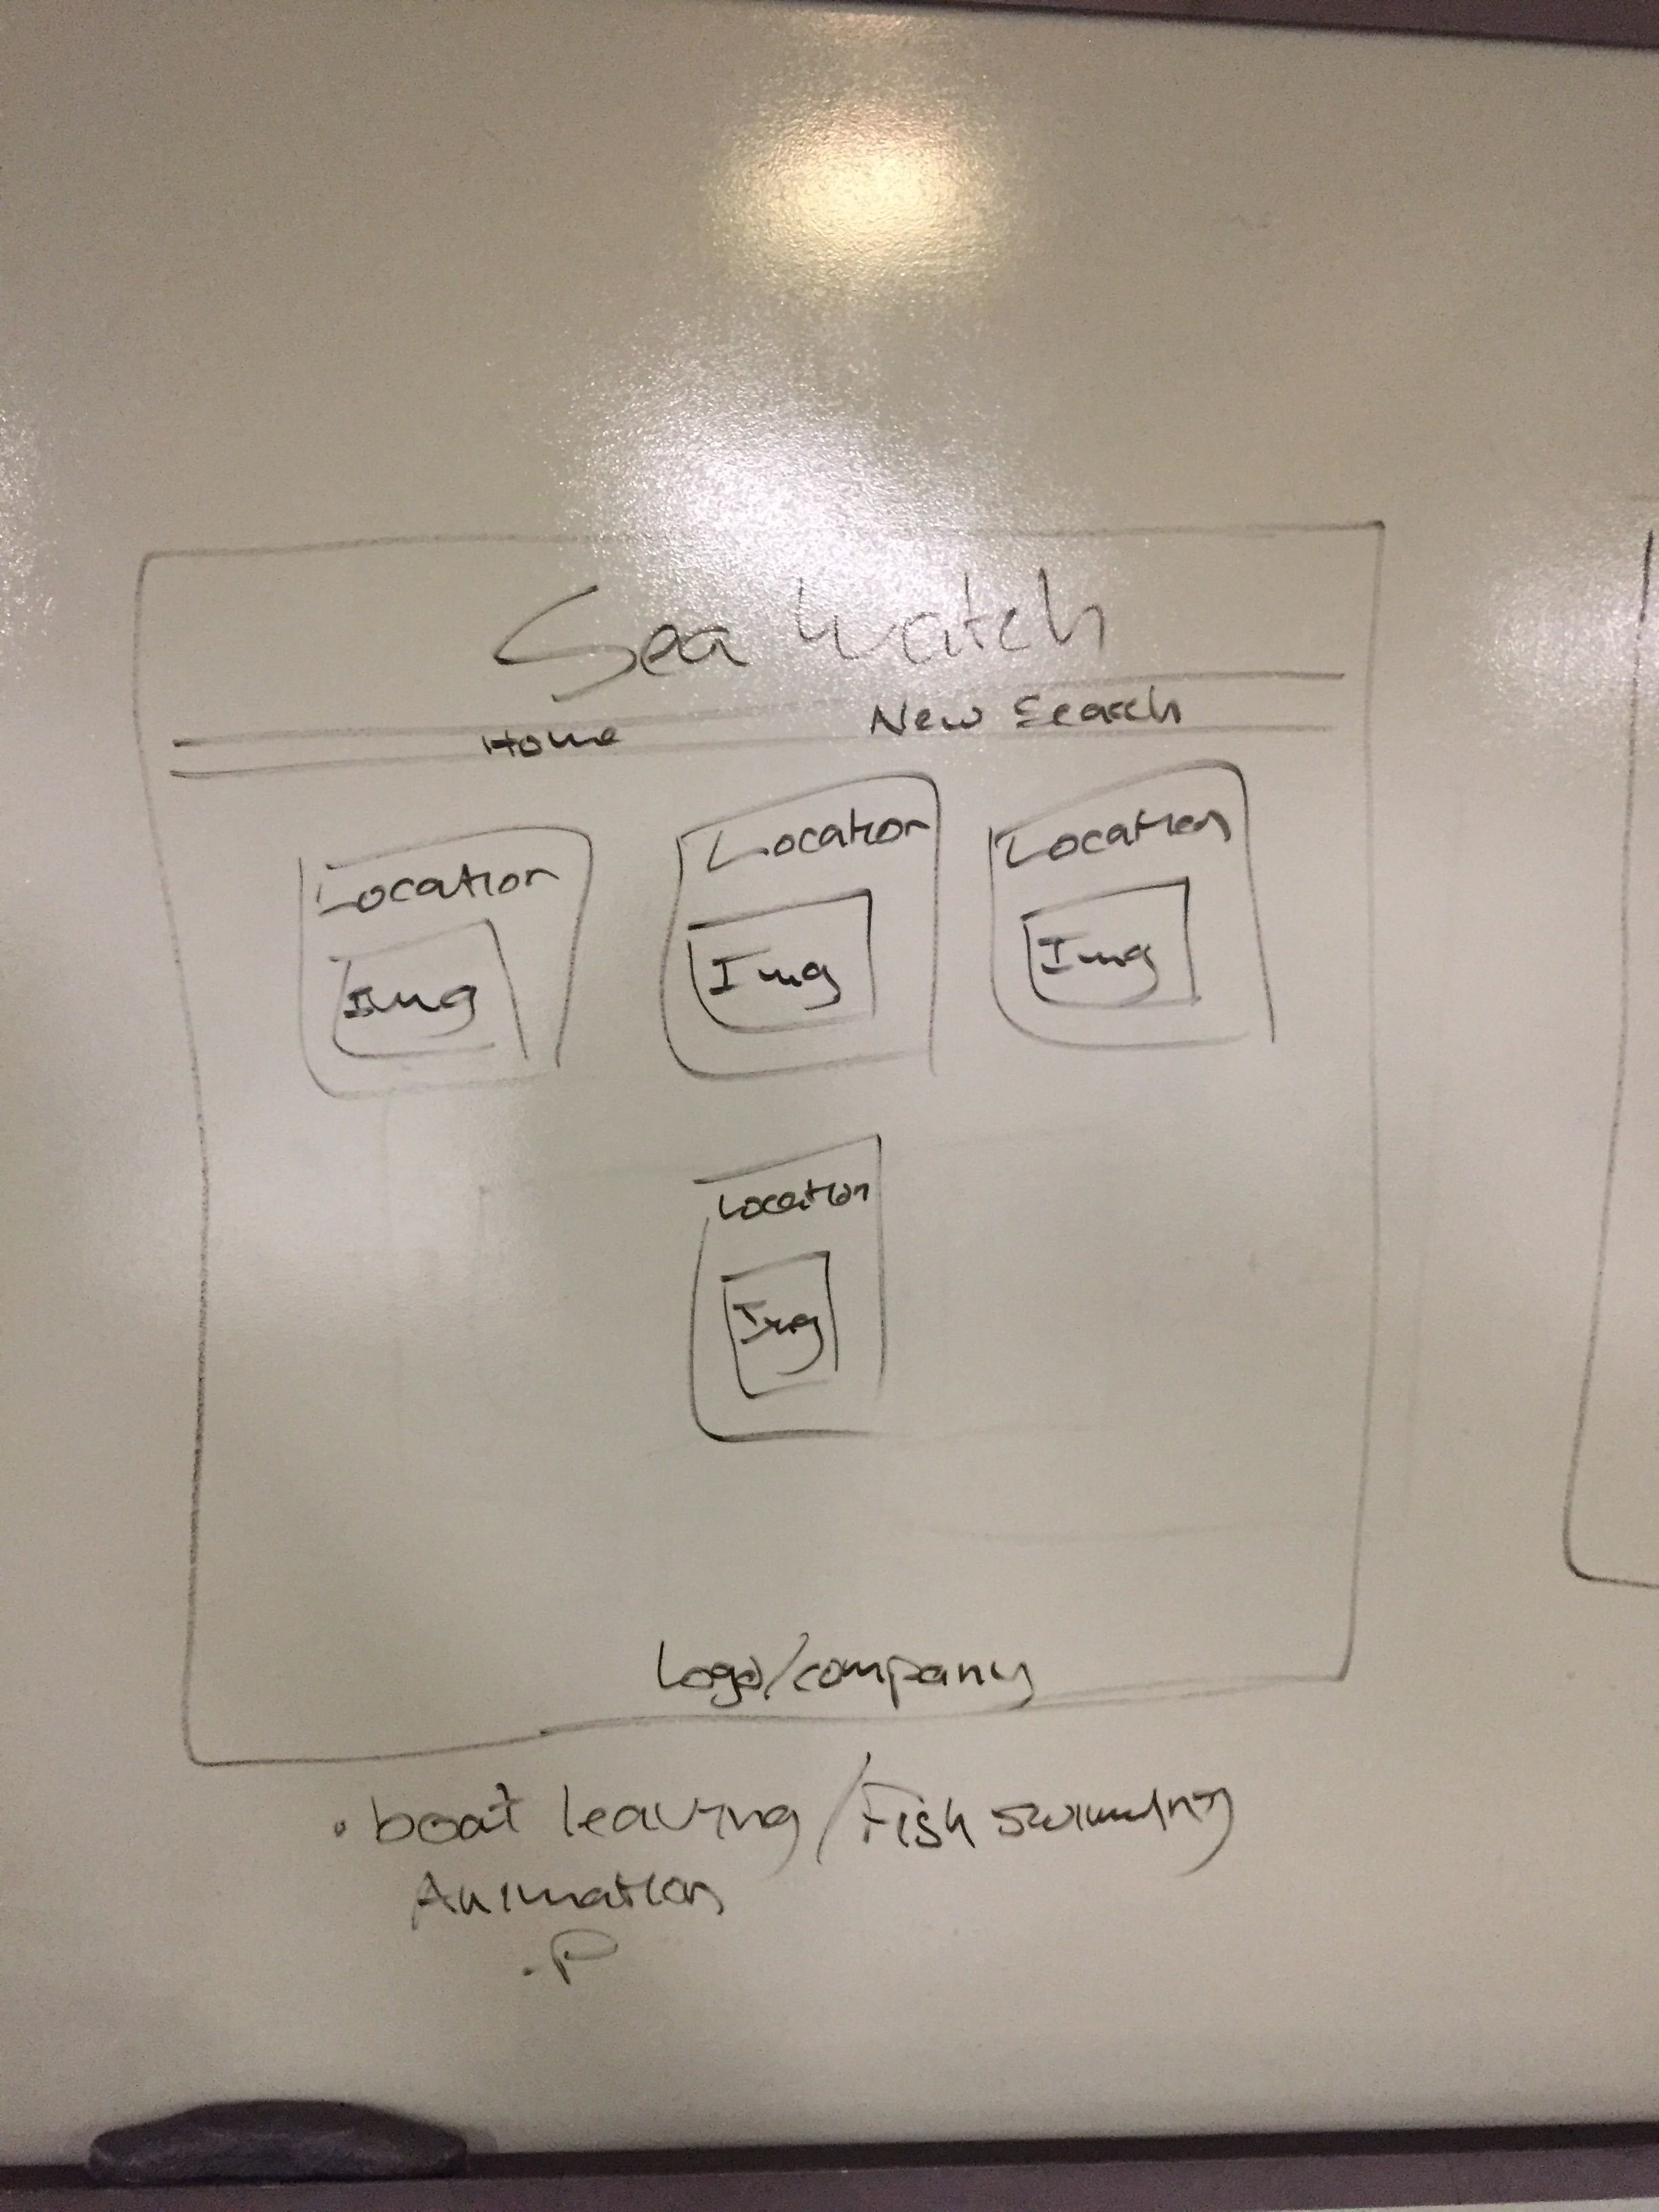 Sea Watch
Home New Search
Location Location Location
Img Img Img
Location
Img
Logo/company
• boat leaving / Fish swimming
Animation
. P